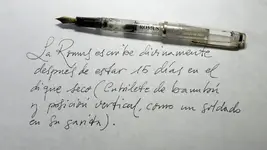 La Romus escribe divinamente
después de estar 15 días en el
dique seco (Cubilete de bambú
y posición vertical, como un soldado
en su garita).